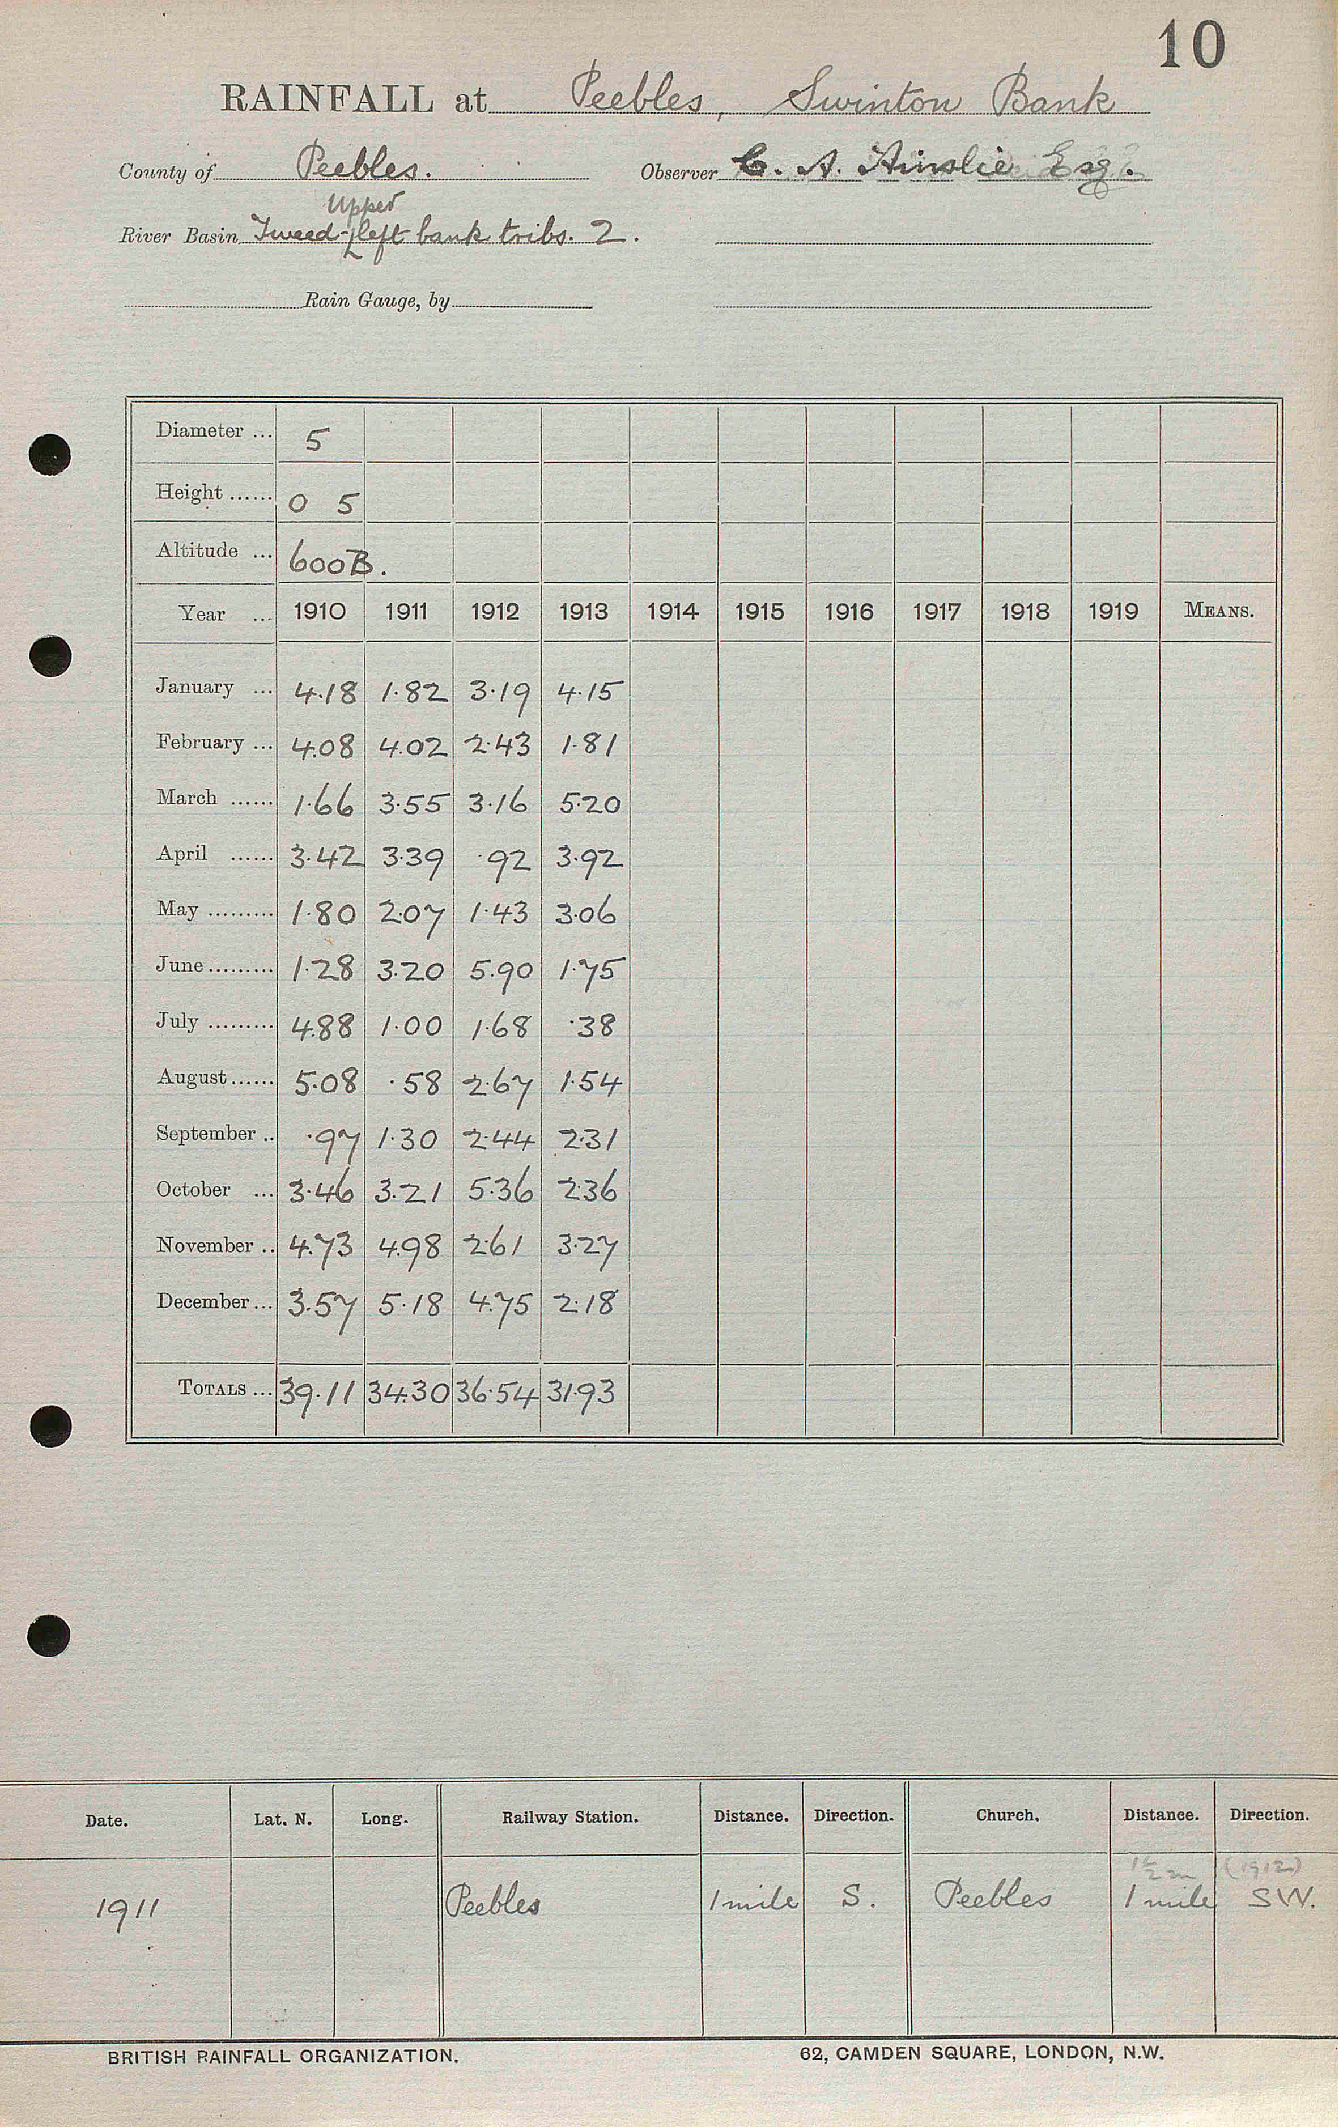 10
RAINFALL at Peebles, Swinton Bank
County of Peebles. Observer C. A. Ainslie Esq.
Upper
River Basin Tweed-left bank tribs. 2.
Rain Gauge, by
Diameter ... 5
Height ...... 0 5
Altitude ... 600B.
Year ... 1910 1911 1912 1913 1914 1915 1916 1917 1918 1919 MEANS.
January ... 4.18 1.82 3.19 4.15
February ... 4.08 4.02 2.43 1.81
March ...... 1.66 3.55 3.16 5.20
April ...... 3.42 3.39 .92 3.92
May ......... 1.80 2.07 1.43 3.06
June ......... 1.28 3.20 5.90 1.75
July ......... 4.88 1.00 1.68 .38
August ...... 5.08 .58 2.67 1.54
September .. .97 1.30 2.44 2.31
October ... 3.46 3.21 5.36 2.36
November .. 4.73 4.98 2.61 3.27
December ... 3.57 5.18 4.75 2.18
TOTALS ... 39.11 34.30 36.54 31.93
Date. Lat. N. Long. Railway Station. Distance. Direction. Church. Distance. Direction.
1½ m (1912)
1911 Peebles 1 mile S. Peebles 1 mile SW.
BRITISH RAINFALL ORGANIZATION. 62, CAMDEN SQUARE, LONDON, N.W.